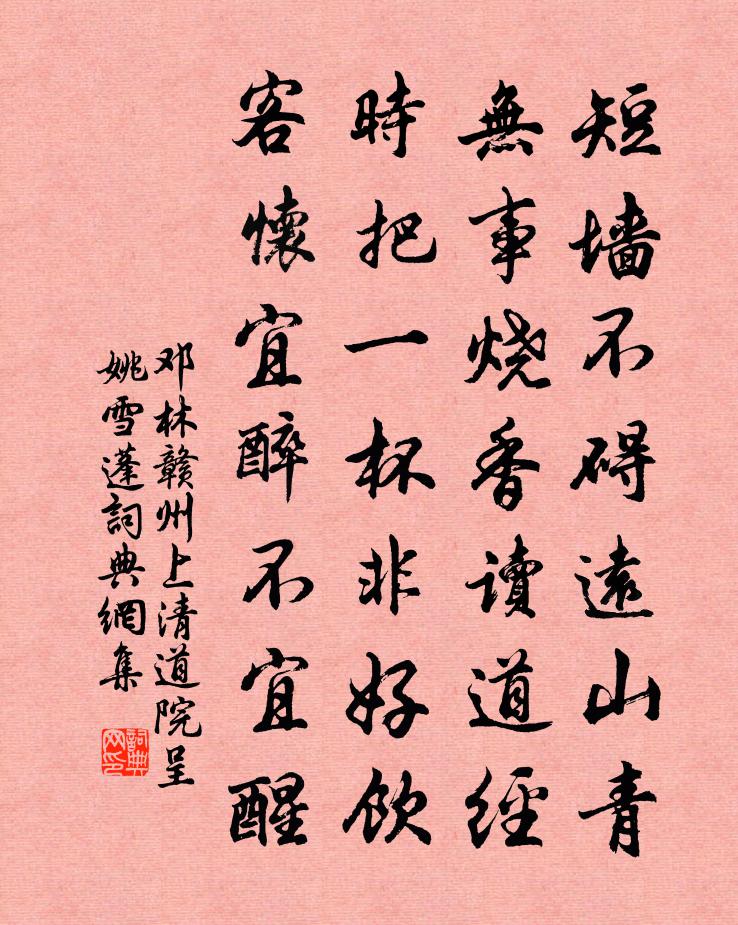 短墙不碍遠山青
無事烧香讀道經
時把一杯非好飲
客懷宜醉不宜醒
邓林赣州上清道院呈
姚雪蓬詞典網集
詞典网印